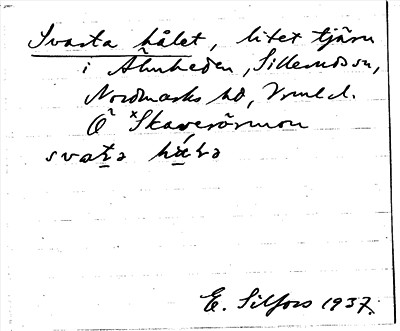 Svarta hålet, litet tjärn
i Älmheden, Sillerudssn,
Nordmarks hd, Vrml.
Ö Skaverörmon
svaṭa hå
E. Silfors 1937.